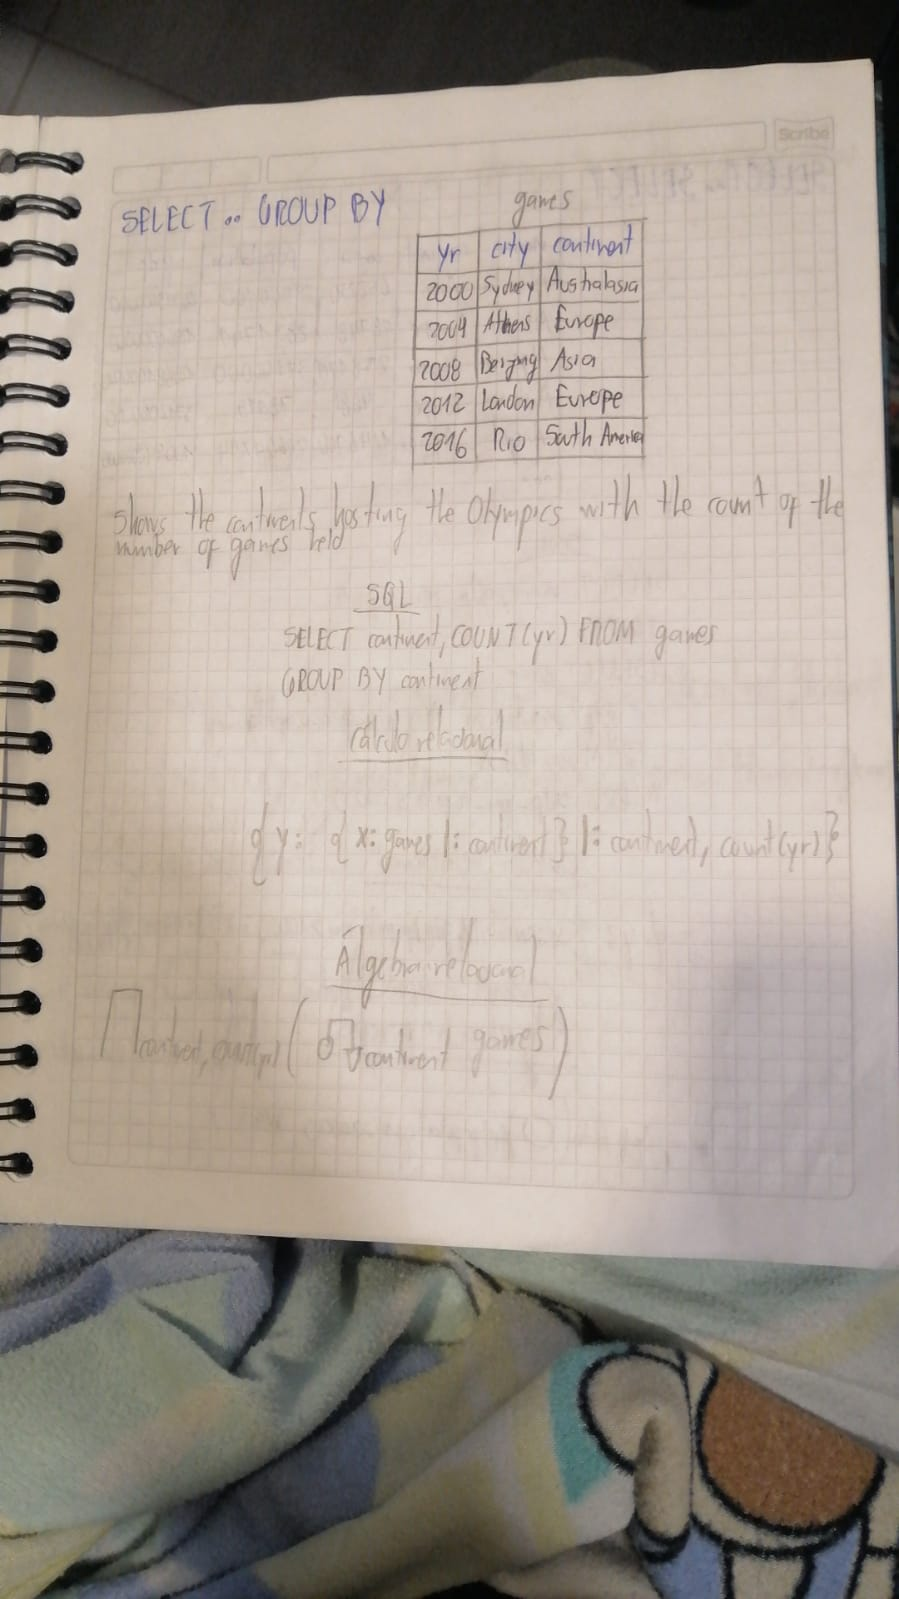 Scribe
SELECT .. GROUP BY
games
yr city continent
2000 Sydney Australasia
2004 Athens Europe
2008 Beijing Asia
2012 London Europe
2016 Rio South America
Shows the continents hosting the Olympics with the count of the
number of games held
SQL
SELECT continent, COUNT(yr) FROM games
GROUP BY continent
Cálculo relacional
{y: {x: games |: continent} |: continent, count(yr)}
Álgebra relacional
∏ continent, count(yr) ( continent games )